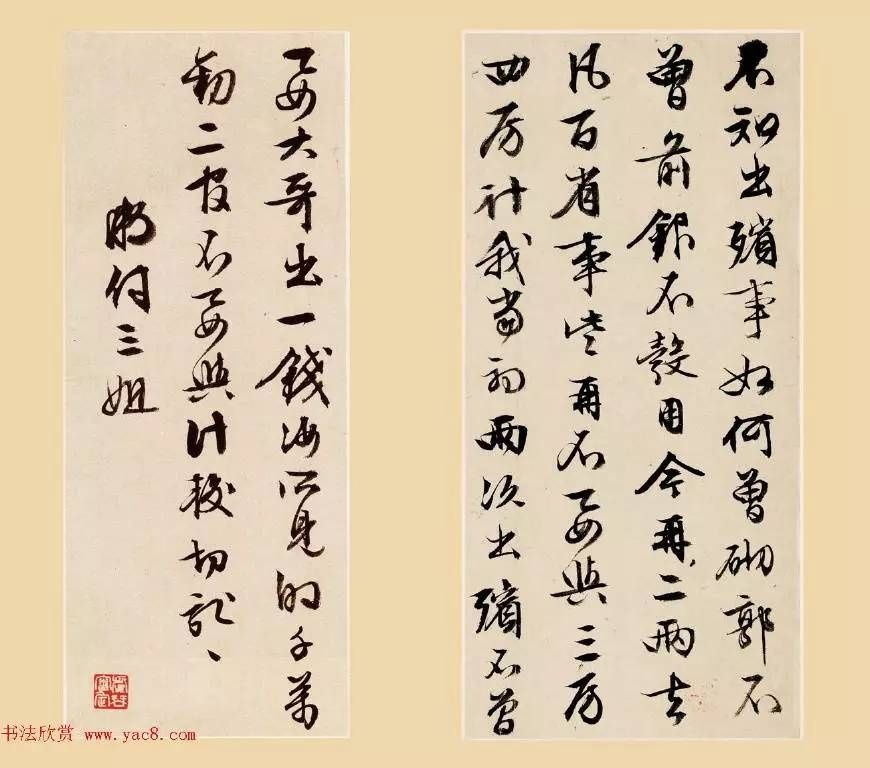 不知出殯事如何曾砌郭不
曾前銀不彀用今再二兩去
凡百省事些再不要與三房
四房計我當初兩次出殯不曾
要大哥出一錢汝所見的千萬
勸二官不要與計較切記、
付三姐
书法欣赏 www.yac8.com